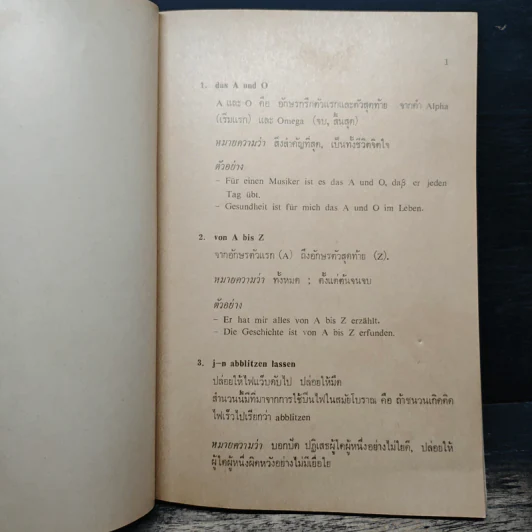 1
1. das A und O
A และ O คือ อักษรกรีกตัวแรกและตัวสุดท้าย จากคำ Alpha
(เริ่มแรก) และ Omega (จบ, สิ้นสุด)
หมายความว่า สิ่งสำคัญที่สุด, เป็นทั้งชีวิตจิตใจ
ตัวอย่าง
– Für einen Musiker ist es das A und O, daß er jeden
Tag übt.
– Gesundheit ist für mich das A und O im Leben.
2. von A bis Z
จากอักษรตัวแรก (A) ถึงอักษรตัวสุดท้าย (Z).
หมายความว่า ทั้งหมด ; ตั้งแต่ต้นจนจบ
ตัวอย่าง
– Er hat mir alles von A bis Z erzählt.
– Die Geschichte ist von A bis Z erfunden.
3. j–n abblitzen lassen
ปล่อยให้ไฟแว็บดับไป ปล่อยให้มืด
สำนวนนี้มีที่มาจากการใช้ปืนไฟในสมัยโบราณ คือ ถ้าชนวนเกิดติด
ไฟเร็วไปเรียกว่า abblitzen
หมายความว่า บอกปัด ปฏิเสธผู้ใดผู้หนึ่งอย่างไม่ไยดี, ปล่อยให้
ผู้ใดผู้หนึ่งผิดหวังอย่างไม่มีเยื่อใย